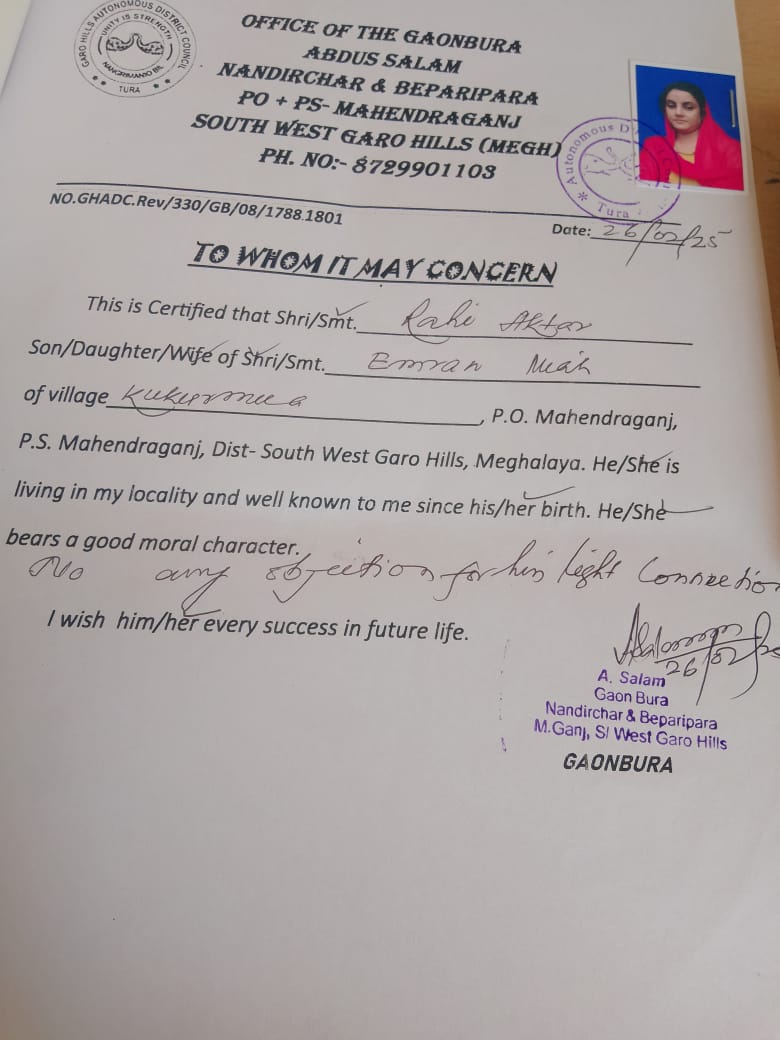 GARO HILLS AUTONOMOUS DISTRICT COUNCIL
UNITY IS STRENGTH
TURA
OFFICE OF THE GAONBURA
ABDUS SALAM
NANDIRCHAR & BEPARIPARA
PO + PS- MAHENDRAGANJ
SOUTH WEST GARO HILLS (MEGH)
PH. NO:- 8729901103
Autonomous
Tura
NO.GHADC.Rev/330/GB/08/1788.1801
Date: 26/02/25
TO WHOM IT MAY CONCERN
This is Certified that Shri/Smt. Rahi Aktar
Son/Daughter/Wife of Shri/Smt. Emran Miah
of village , P.O. Mahendraganj,
P.S. Mahendraganj, Dist- South West Garo Hills, Meghalaya. He/She is
living in my locality and well known to me since his/her birth. He/She
bears a good moral character.
No any objection for his light Connection
I wish him/her every success in future life.
26/02/25
A. Salam
Gaon Bura
Nandirchar & Beparipara
M.Ganj, S/ West Garo Hills
GAONBURA